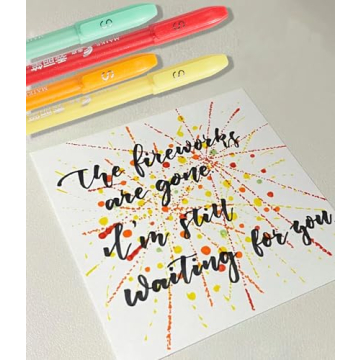 The fireworks
are gone
i'm still
waiting for you
S
S